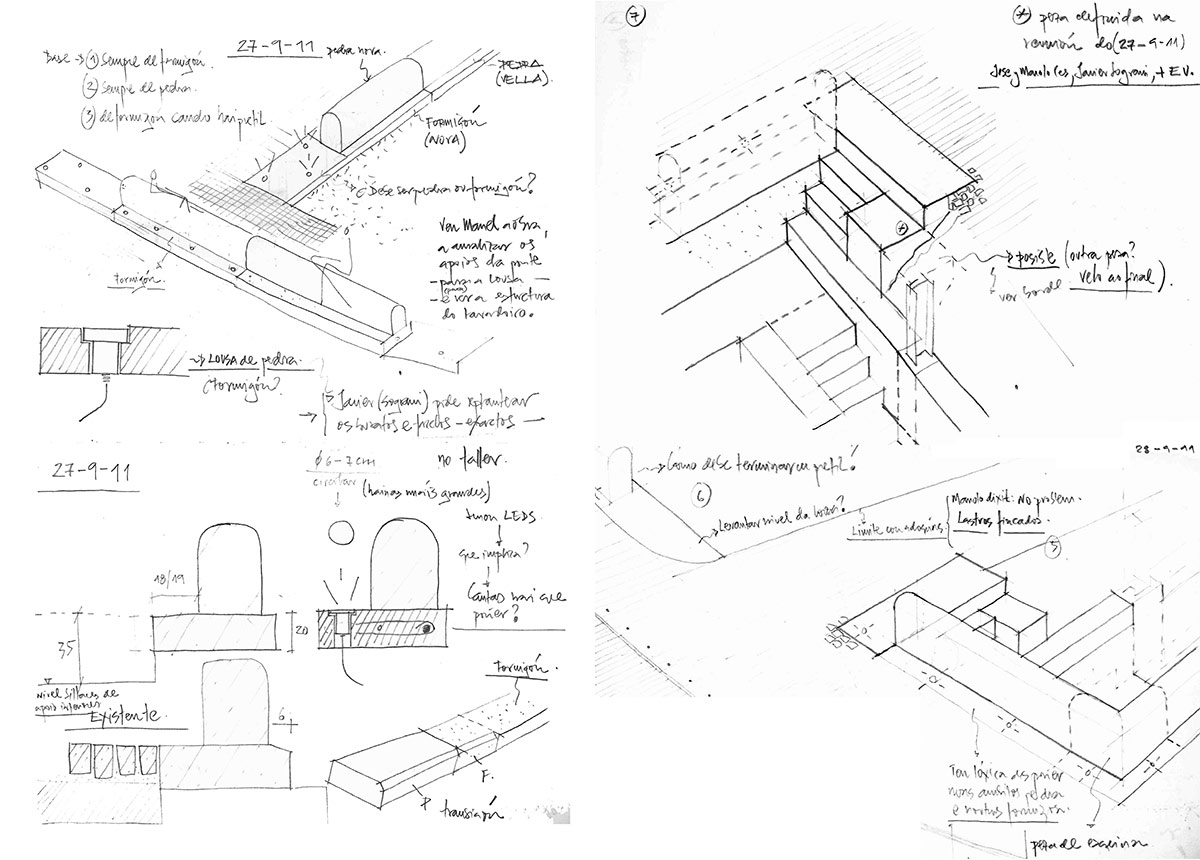 27-9-11
Base → ① Sempre de formigón.
② Sempre de pedra.
③ de formigón cando hai pretil.
pedra nova.
PEDRA
(VELLA)
FORMIGÓN
(NOVA)
Debe ser pedra ou formigón?
Ven Manel a obra,
a analizar os
apoios da ponte
- para a lousa -
- e ver a estructura
do lavadoiro.
Formigón
→ Lousa de pedra.
(Formigón?
Javier (Sograni) pide xplantear
os buratos e fuchos - exactos -
no taller.
27-9-11
ϕ 6-7cm
circular
(hainas máis grandes)
tiñan LEDS.
que implica?
Cantas hai que
poñer?
18/19
35
20
Nivel Sillares de
apoio inferiores
Existente.
6
Formigón.
F.
P
transición
⑦
* peza definida na
reunión do (27-9-11)
Jose y Manolo Ces, Javier Sograni, + E.V.
*
→ posible (outra peza?
velo ao final).
ver borde
28-9-11
→ Cómo debe terminar un pretil?
⑥
→ Levantar nivel da lousa?
Limite con adoquíns
Manolo dixit: No problem.
Lastros fincados.
⑤
Ten lóxica de poñer
nuns ámbitos pedra
e noutros formigón.
peza de esquina